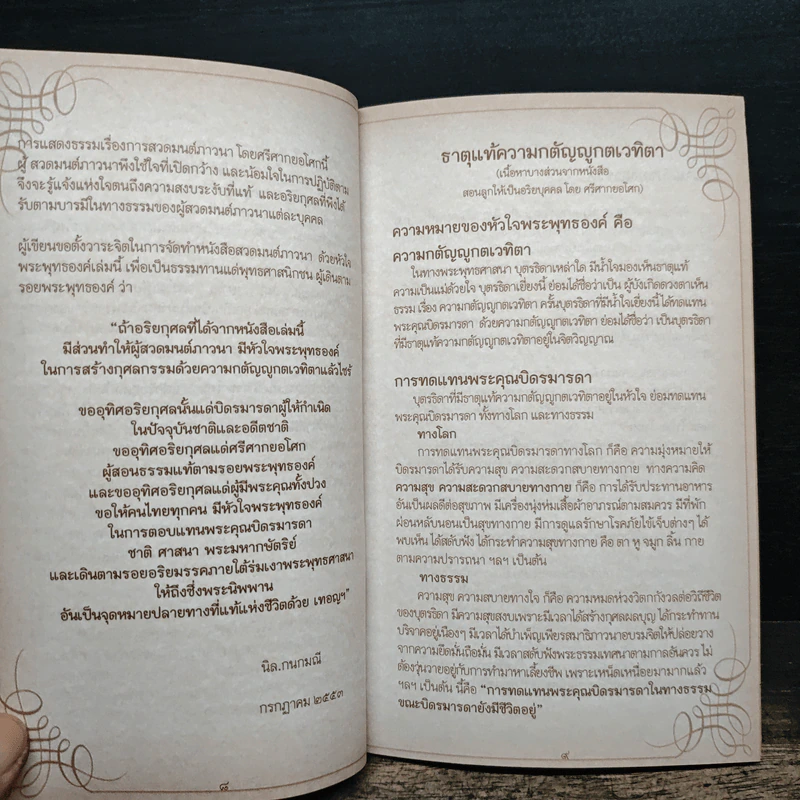 การแสดงธรรมเรื่องการสวดมนต์ภาวนา โดยศรีศากยอโศกนี้
ผู้ สวดมนต์ภาวนาพึงใช้ใจที่เปิดกว้าง และน้อมใจในการปฏิบัติตาม
จึงจะรู้แจ้งแห่งใจตนถึงความสงบระงับที่แท้ และอริยกุศลที่พึงได้
รับตามบารมีในทางธรรมของผู้สวดมนต์ภาวนาแต่ละบุคคล
ผู้เขียนขอตั้งวาระจิตในการจัดทำหนังสือสวดมนต์ภาวนา ด้วยหัวใจ
พระพุทธองค์เล่มนี้ เพื่อเป็นธรรมทานแด่พุทธศาสนิกชน ผู้เดินตาม
รอยพระพุทธองค์ ว่า
“ถ้าอริยกุศลที่ได้จากหนังสือเล่มนี้
มีส่วนทำให้ผู้สวดมนต์ภาวนา มีหัวใจพระพุทธองค์
ในการสร้างกุศลกรรมด้วยความกตัญญูกตเวทิตาแล้วไซร้
ขออุทิศอริยกุศลนั้นแด่บิดรมารดาผู้ให้กำเนิด
ในปัจจุบันชาติและอดีตชาติ
ขออุทิศอริยกุศลแด่ศรีศากยอโศก
ผู้สอนธรรมแท้ตามรอยพระพุทธองค์
และขออุทิศอริยกุศลแด่ผู้มีพระคุณทั้งปวง
ขอให้คนไทยทุกคน มีหัวใจพระพุทธองค์
ในการตอบแทนพระคุณบิดรมารดา
ชาติ ศาสนา พระมหากษัตริย์
และเดินตามรอยอริยมรรคภายใต้ร่มเงาพระพุทธศาสนา
ให้ถึงซึ่งพระนิพพาน
อันเป็นจุดหมายปลายทางที่แท้แห่งชีวิตด้วย เทอญฯ”
นิล.กนกมณี
กรกฎาคม ๒๕๕๓
๘
ธาตุแท้ความกตัญญูกตเวทิตา
(เนื้อหาบางส่วนจากหนังสือ
สอนลูกให้เป็นอริยบุคคล โดย ศรีศากยอโศก)
ความหมายของหัวใจพระพุทธองค์ คือ
ความกตัญญูกตเวทิตา
ในทางพระพุทธศาสนา บุตรธิดาเหล่าใด มีน้ำใจมองเห็นธาตุแท้
ความเป็นแม่ด้วยใจ บุตรธิดาเยี่ยงนี้ ย่อมได้ชื่อว่าเป็น ผู้บังเกิดดวงตาเห็น
ธรรม เรื่อง ความกตัญญูกตเวทิตา ครั้นบุตรธิดาที่มีน้ำใจเยี่ยงนี้ได้ทดแทน
พระคุณบิดรมารดา ด้วยความกตัญญูกตเวทิตา ย่อมได้ชื่อว่า เป็นบุตรธิดา
ที่มีธาตุแท้ความกตัญญูกตเวทิตาอยู่ในจิตวิญญาณ
การทดแทนพระคุณบิดรมารดา
บุตรธิดาที่มีธาตุแท้ความกตัญญูกตเวทิตาอยู่ในหัวใจ ย่อมทดแทน
พระคุณบิดรมารดา ทั้งทางโลก และทางธรรม
ทางโลก
การทดแทนพระคุณบิดรมารดาทางโลก ก็คือ ความมุ่งหมายให้
บิดรมารดาได้รับความสุข ความสะดวกสบายทางกาย ทางความคิด
ความสุข ความสะดวกสบายทางกาย ก็คือ การได้รับประทานอาหาร
อันเป็นผลดีต่อสุขภาพ มีเครื่องนุ่งห่มเสื้อผ้าอาภรณ์ตามสมควร มีที่พัก
ผ่อนหลับนอนเป็นสุขทางกาย มีการดูแลรักษาโรคภัยไข้เจ็บต่างๆ ได้
พบเห็น ได้สดับฟัง ได้กระทำความสุขทางกาย คือ ตา หู จมูก ลิ้น กาย
ตามความปรารถนา ฯลฯ เป็นต้น
ทางธรรม
ความสุข ความสบายทางใจ ก็คือ ความหมดห่วงวิตกกังวลต่อวิถีชีวิต
ของบุตรธิดา มีความสุขสงบเพราะมีเวลาได้สร้างกุศลผลบุญ ได้กระทำทาน
บริจาคอยู่เนืองๆ มีเวลาได้บำเพ็ญเพียรสมาธิภาวนาอบรมจิตให้ปล่อยวาง
จากความยึดมั่นถือมั่น มีเวลาสดับฟังพระธรรมเทศนาตามกาลอันควร ไม่
ต้องวุ่นวายอยู่กับการทำมาหาเลี้ยงชีพ เพราะเหน็ดเหนื่อยมามากแล้ว
ฯลฯ เป็นต้น นี้คือ “การทดแทนพระคุณบิดรมารดาในทางธรรม
ขณะบิดรมารดายังมีชีวิตอยู่”
๙